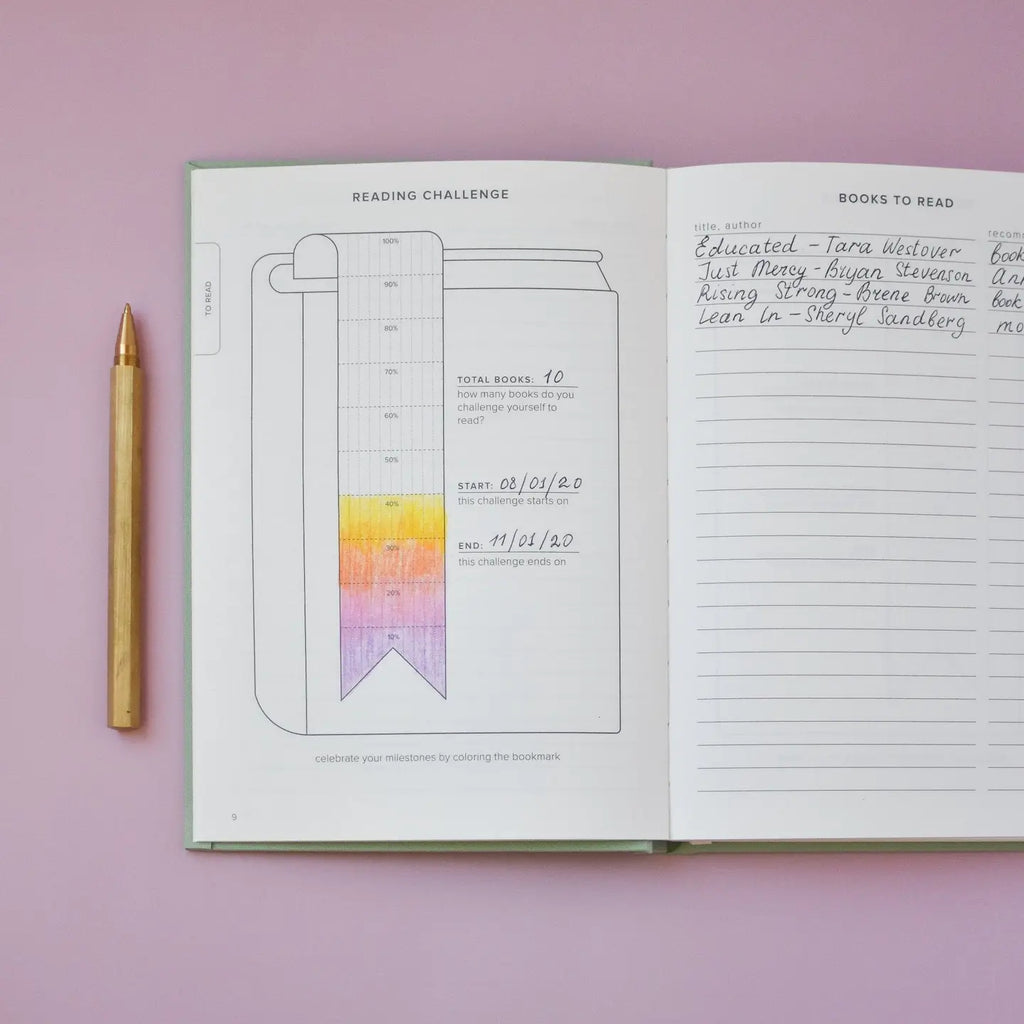 READING CHALLENGE
TO READ
100%
90%
80%
70%
60%
50%
40%
30%
20%
10%
TOTAL BOOKS: 10
how many books do you
challenge yourself to
read?
START: 08/01/20
this challenge starts on
END: 11/01/20
this challenge ends on
celebrate your milestones by coloring the bookmark
9
BOOKS TO READ
title, author
Educated - Tara Westover
Just Mercy - Bryan Stevenson
Rising Strong - Brene Brown
Lean In - Sheryl Sandberg
recom
book
Ann
book
mo